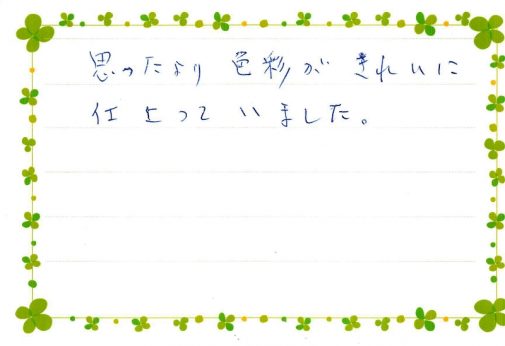 思ったより色彩がきれいに
仕上っていました。